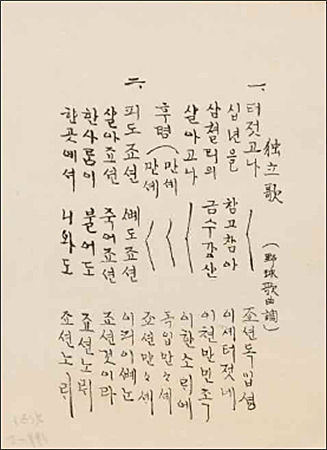 独立歌 (野球歌曲調)
一、터젓고나 죠션독입셩
십년을 참고참아 이제터젓네
삼쳘리의 금수강산 이쳔만민죡
살아고나 이한소리에
후렴 (만셰 독입만々셰
만셰 죠션만々셰
二、피도죠션 뼈도죠션 이피이뼈는
살아죠션 죽어죠션 죠션것이라
한사롬이 불어도 죠션노리
한곳에셔 나와도 죠션노리